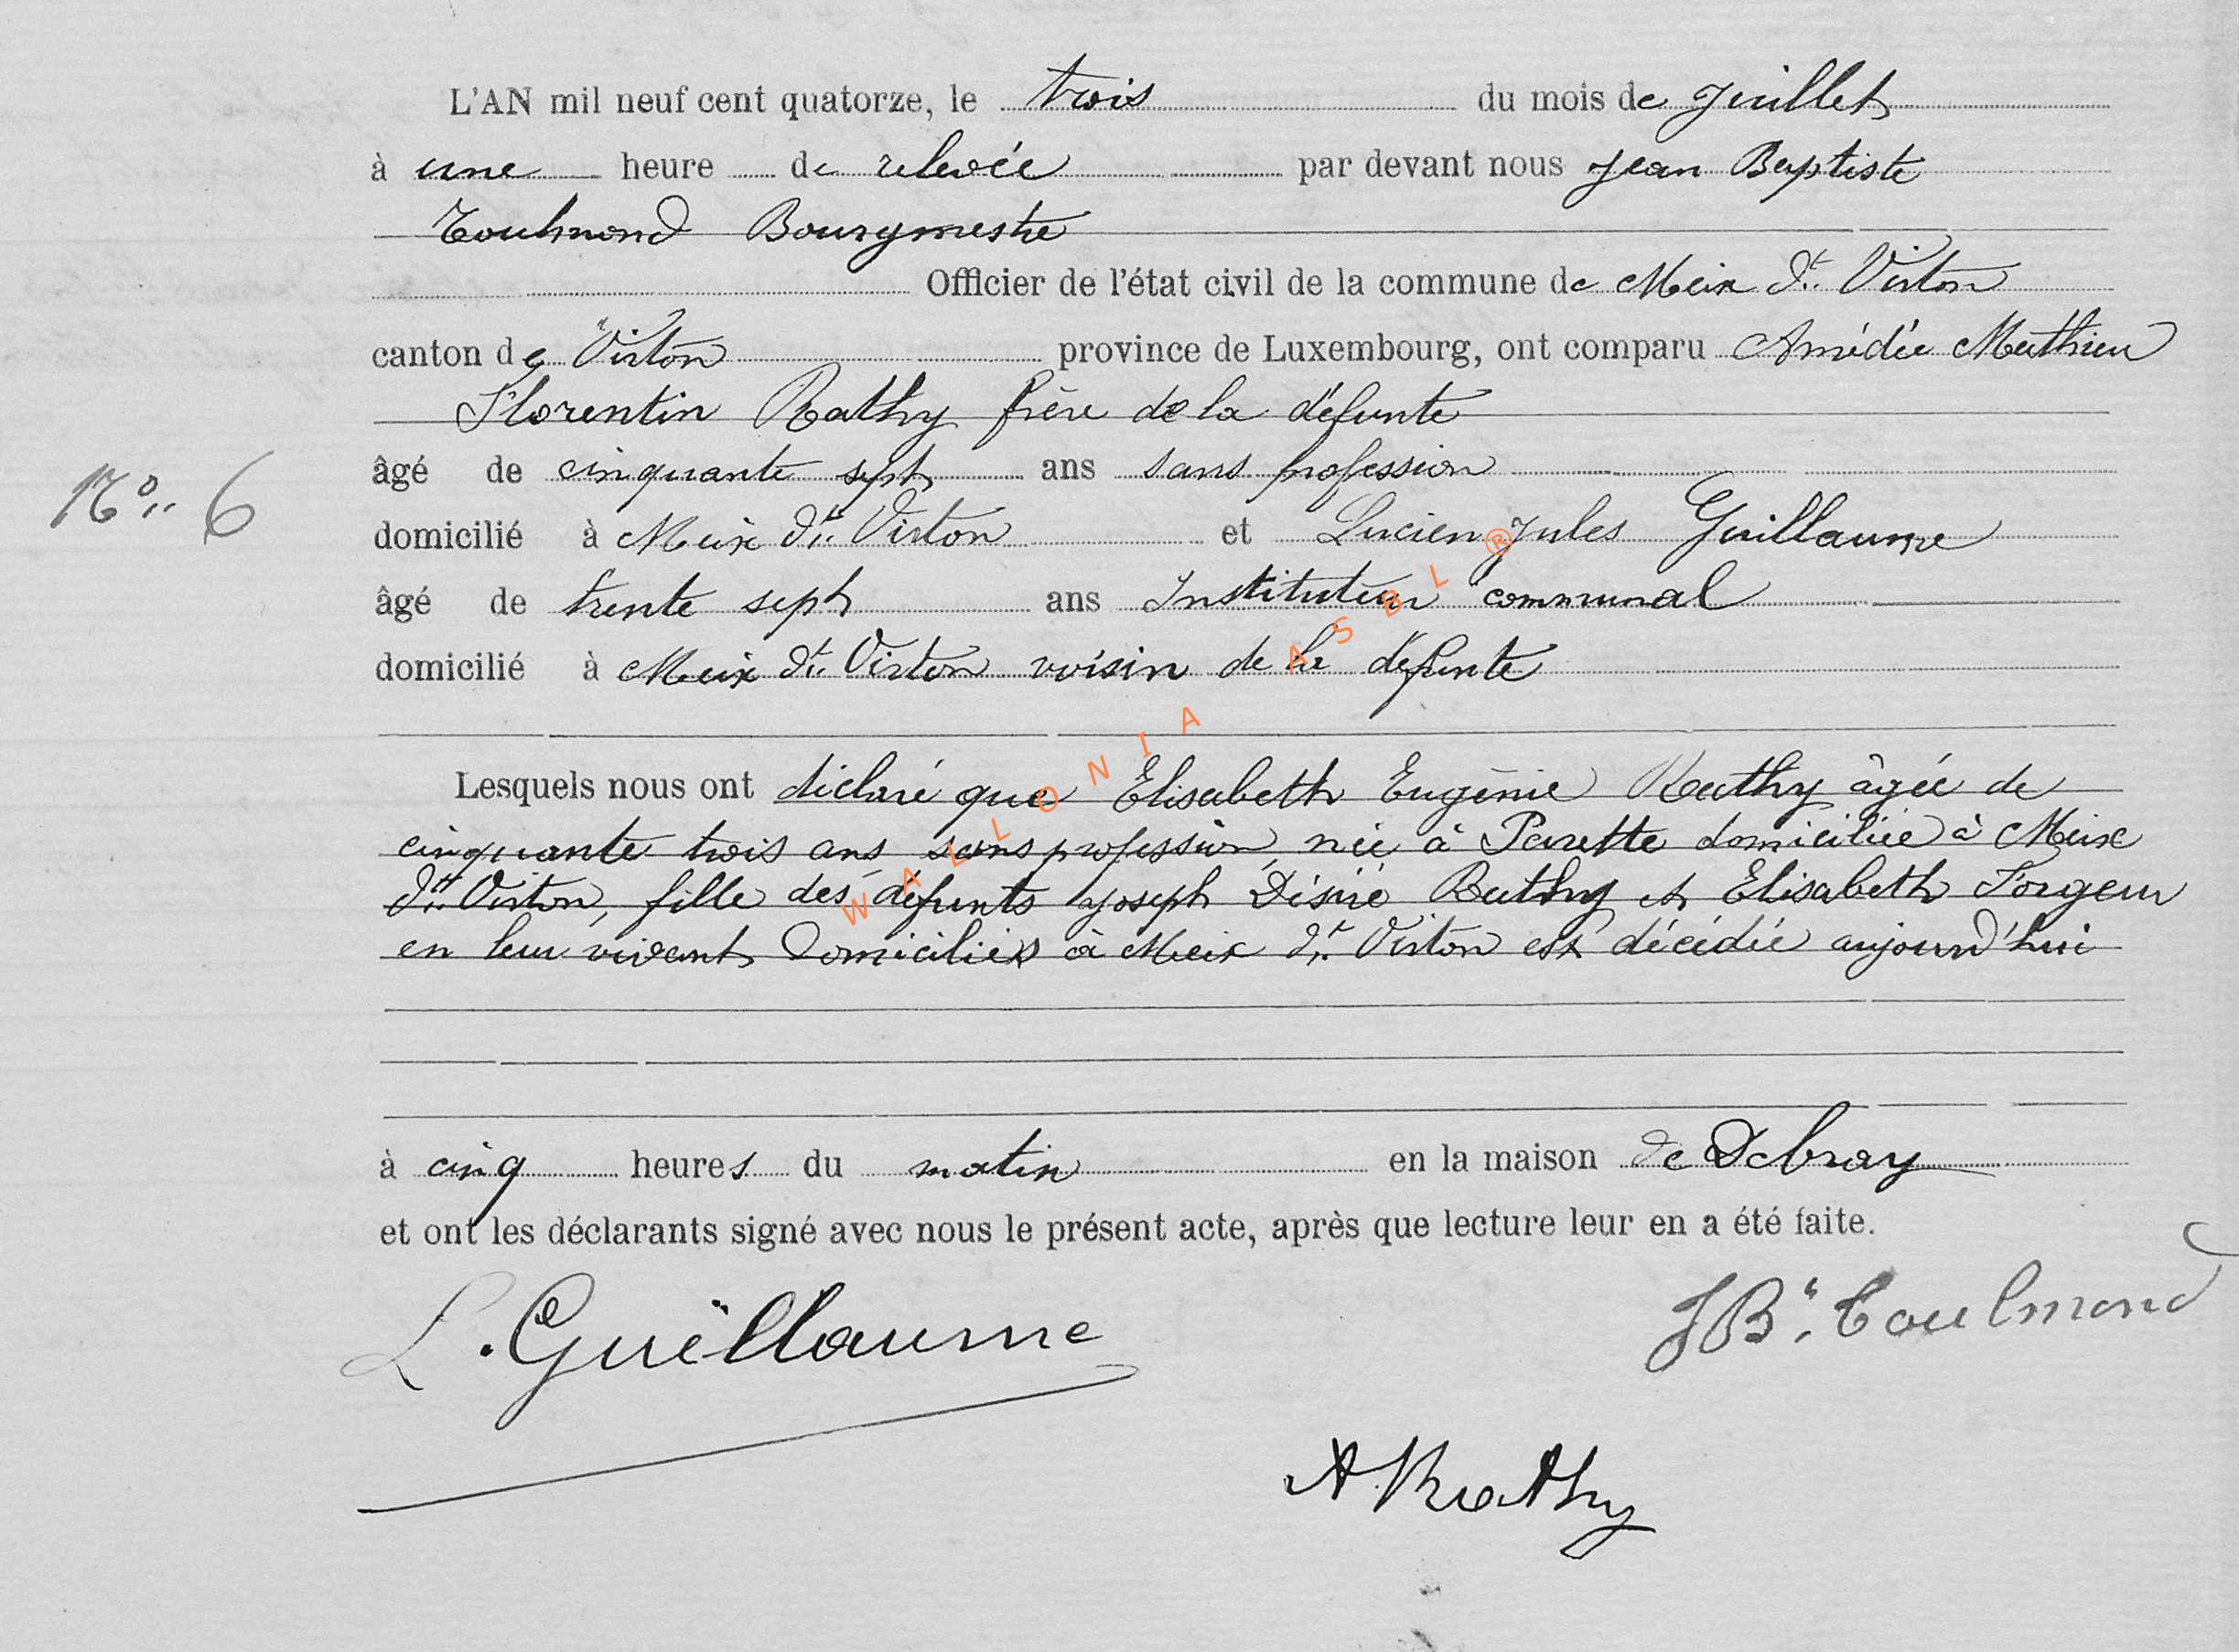 L'AN mil neuf cent quatorze, le trois du mois de juillet
à une heure de relevée par devant nous Jean Baptiste
Toulmond Bourgmestre
Officier de l'état civil de la commune de Meix dt. Virton
canton de Virton province de Luxembourg, ont comparu Amédée Mathieu
Florentin Rathy frère de la défunte
âgé de cinquante sept ans sans profession
No. 6
domicilié à Meix dt. Virton et Lucien Jules Guillaume
âgé de trente sept ans Instituteur communal
domicilié à Meix dt. Virton voisin de la défunte
Lesquels nous ont déclaré que Elisabeth Eugénie Rathy âgée de
cinquante trois ans sans profession, née à Parette domiciliée à Meix
dt. Virton, fille des défunts Joseph Désiré Rathy et Elisabeth Forgeur
en leur vivant domiciliés à Meix dt. Virton est décédée aujourd'hui
à cinq heures du matin en la maison de Debray
et ont les déclarants signé avec nous le présent acte, après que lecture leur en a été faite.
L. Guillaume JBte. Toulmond
A Rathy
WALLONIA ASBL ®